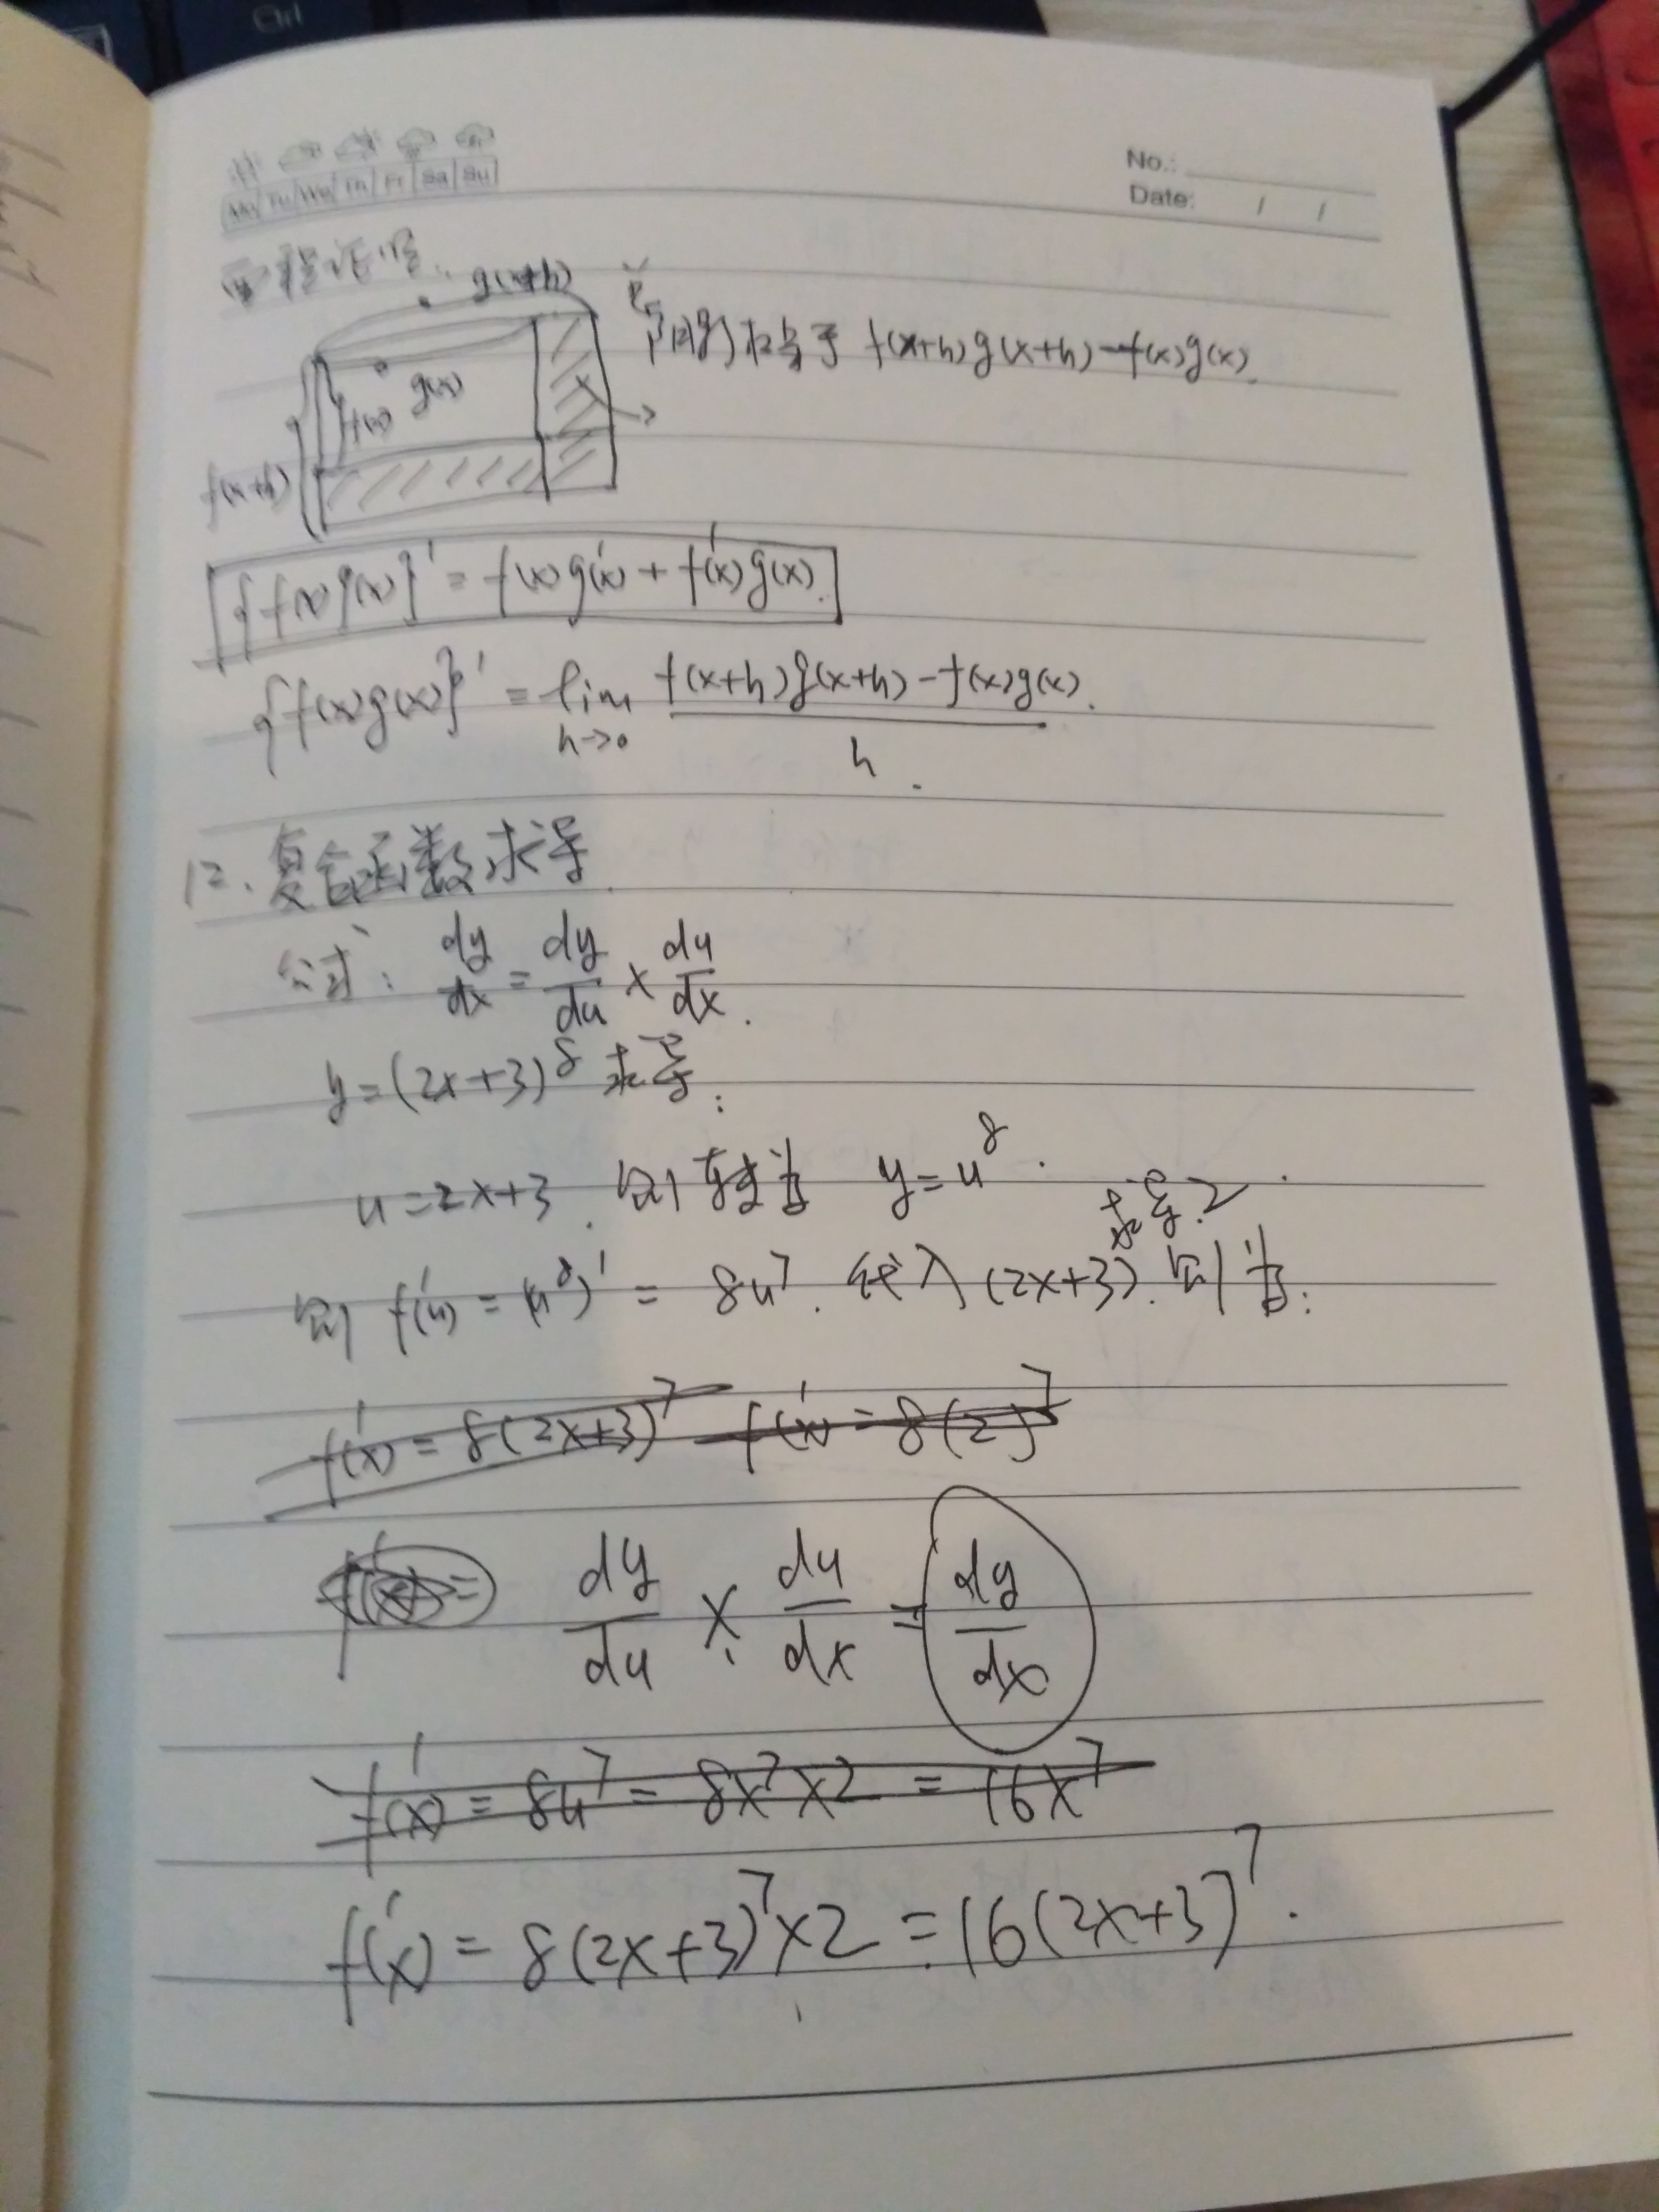 Ctrl
Mo Tu We Th Fr Sa Su
No.:
Date: / /
证明:
g(x+h)
相当于 f(x+h)g(x+h)-f(x)g(x).
g(x)
f(x)
f(x+h)
{f(x)g(x)}' = f(x)g'(x) + f'(x)g(x).
{f(x)g(x)}' = lim h→0 f(x+h)g(x+h)-f(x)g(x) / h.
12. 复合函数求导
公式: dy/dx = dy/du × du/dx.
y=(2x+3)^8 求导:
u=2x+3. 则 y=u^8.
求导.2
则 f'(u) = (u^8)' = 8u^7. 代入(2x+3). 则为:
f'(x) = 8(2x+3)^7 f'(x) = 8(2)^7
f'(x) = dy/du × du/dx = dy/dx
f'(x) = 8u^7 = 8x^7×2 = 16x^7
f'(x) = 8(2x+3)^7×2 = 16(2x+3)^7.